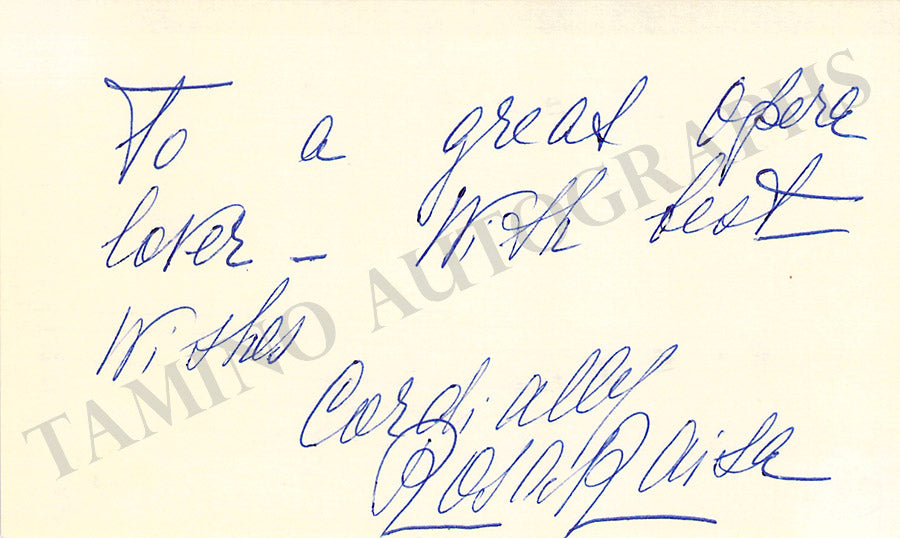 To a great opera
lover – With best
Wishes
Cordially
Rosa Raisa
TAMINO AUTOGRAPHS